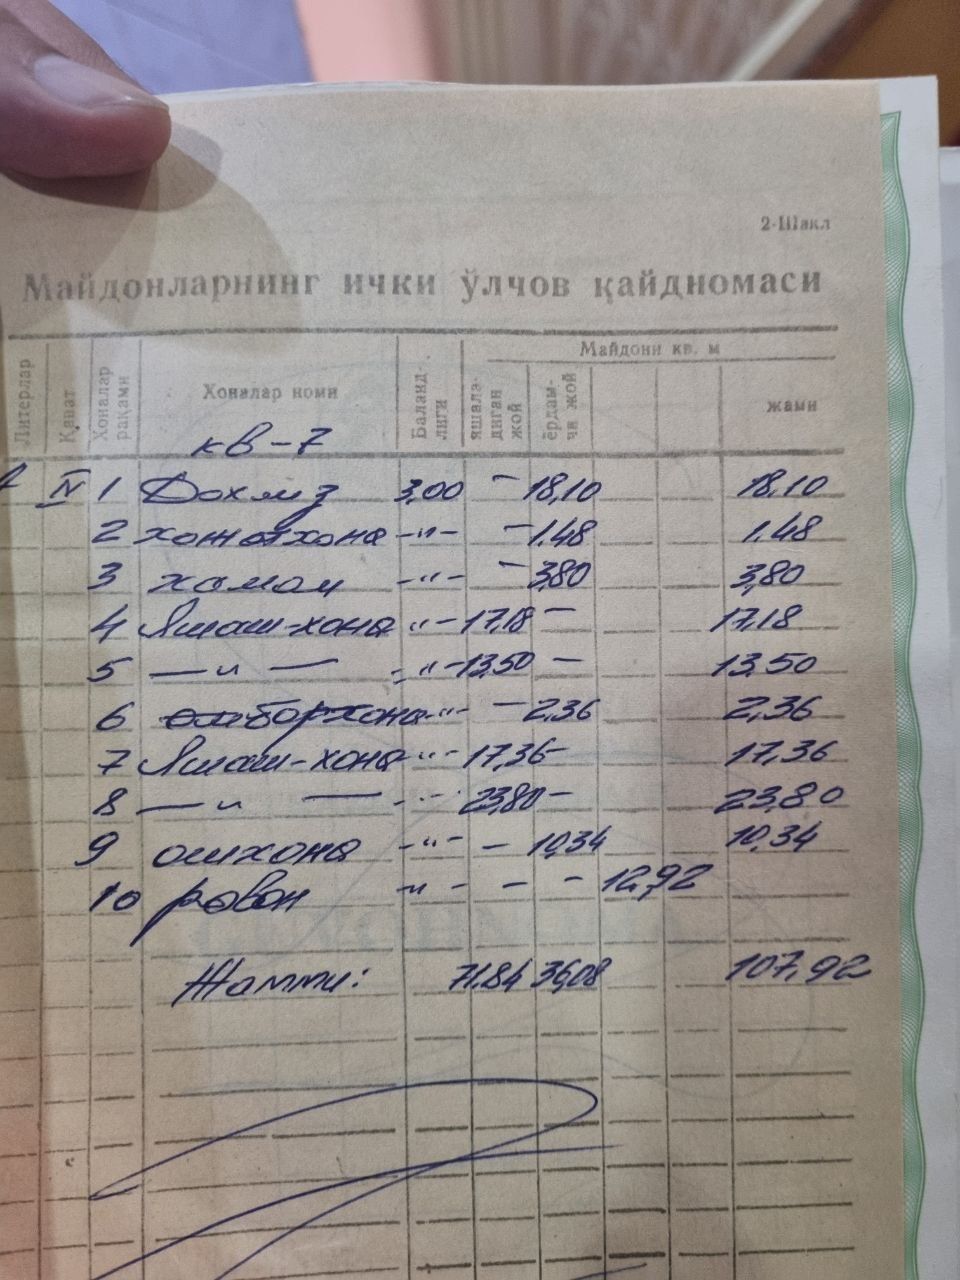 2-Шакл
Майдонларнинг ички ўлчов қайдномаси
Литерлар Қават Хоналар рақами Хоналар номи Баландлиги Майдони кв. м
яшаладиган жой ёрдамчи жой жами
кв-7
А IV 1 Дохлиз 3,00 - 18,10 18,10
2 хожатхона -"- - 1.48 1.48
3 хамом -"- - 3,80 3,80
4 Яшаш-хона -"- 17,18 - 17,18
5 — " — -"- 13,50 - 13.50
6 омборхона -"- - 2,36 2,36
7 Яшаш-хона -"- 17,36 - 17,36
8 — " — -"- 23,80 - 23,80
9 ошхона -"- - 10,34 10,34
10 равон -"- - - 12,92
Жамми: 71.84 36,08 107,92